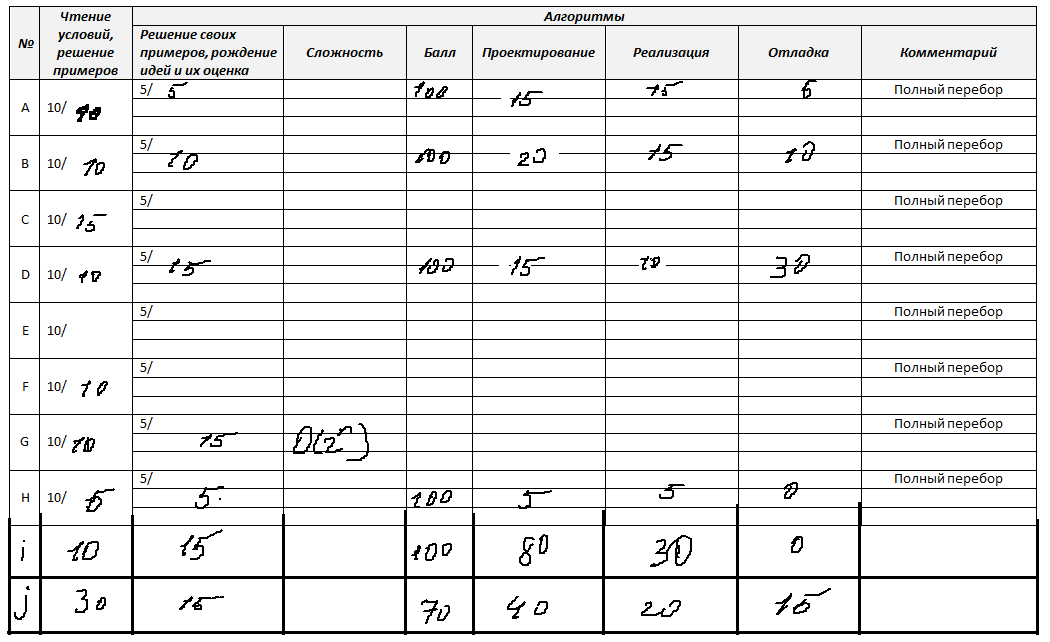 № Чтение условий, решение примеров Алгоритмы
Решение своих примеров, рождение идей и их оценка Сложность Балл Проектирование Реализация Отладка Комментарий
A 10/ 10 5/ 5 100 15 15 5 Полный перебор
B 10/ 10 5/ 10 100 20 15 10 Полный перебор
C 10/ 15 5/ Полный перебор
D 10/ 10 5/ 15 100 15 10 30 Полный перебор
E 10/ 5/ Полный перебор
F 10/ 10 5/ Полный перебор
G 10/ 10 5/ 15 Полный перебор
H 10/ 5 5/ 5 100 5 5 0 Полный перебор
i 10 15 100 80 30 0
j 30 15 70 40 20 15